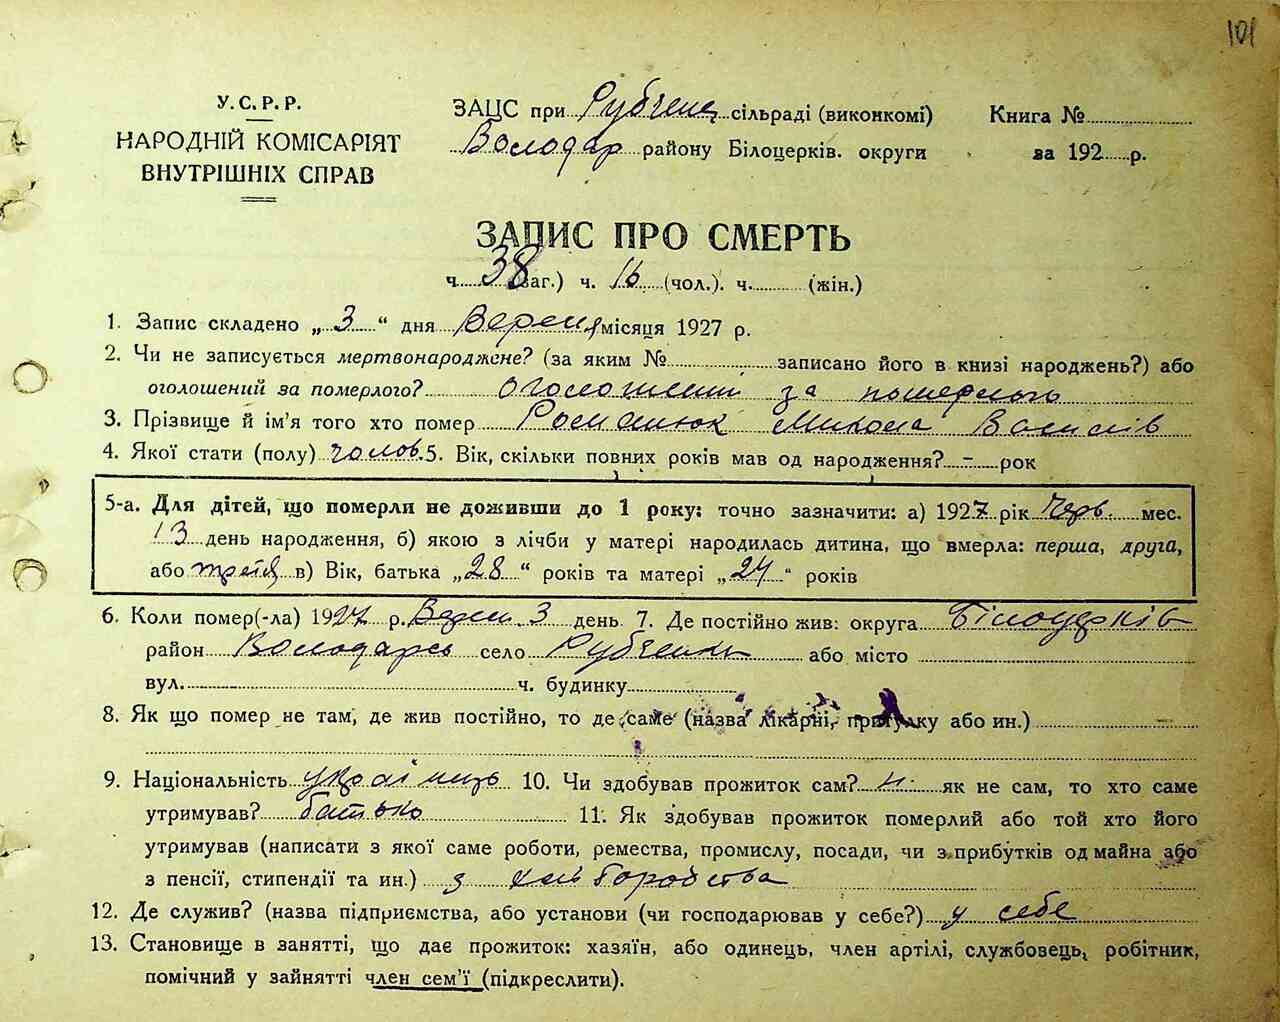 101
У.С.Р.Р.
НАРОДНІЙ КОМІСАРІЯТ
ВНУТРІШНІХ СПРАВ
ЗАЦС при Рубчен. сільраді (виконкомі)
Володар району Білоцерків. округи
Книга №
за 192 р.
ЗАПИС ПРО СМЕРТЬ
ч. 38 (заг.) ч. 16 (чол.). ч. (жін.)
1. Запис складено „ 3 “ дня Вересня місяця 1927 р.
2. Чи не записується мертвонароджене? (за яким № записано його в книзі народжень?) або
оголошений за померлого? оголошений за померлого
3. Прізвище й ім'я того хто помер Романюк Микола Василів
4. Якої стати (полу) чолов. 5. Вік, скільки повних років мав од народження? - рок
5-а. Для дітей, що померли не доживши до 1 року: точно зазначити: а) 1927 рік Черв. мес.
13 день народження, б) якою з лічби у матері народилась дитина, що вмерла: перша, друга,
або третя в) Вік, батька „ 28 “ років та матері „ 24 “ років
6. Коли помер(-ла) 1927 р. Верес. 3 день 7. Де постійно жив: округа Білоцерків
район Володарсь село Рубченки або місто
вул. ч. будинку
8. Як що помер не там, де жив постійно, то де саме (назва лікарні, притулку або ин.)
9. Національність українець 10. Чи здобував прожиток сам? н. як не сам, то хто саме
утримував? батько 11. Як здобував прожиток померлий або той хто його
утримував (написати з якої саме роботи, ремества, промислу, посади, чи з прибутків од майна або
з пенсії, стипендії та ин.) з хліборобства
12. Де служив? (назва підприємства, або установи (чи господарював у себе?) у себе
13. Становище в занятті, що дає прожиток: хазяїн, або одинець, член артілі, службовець, робітник,
помічний у зайнятті член сем'ї (підкреслити).